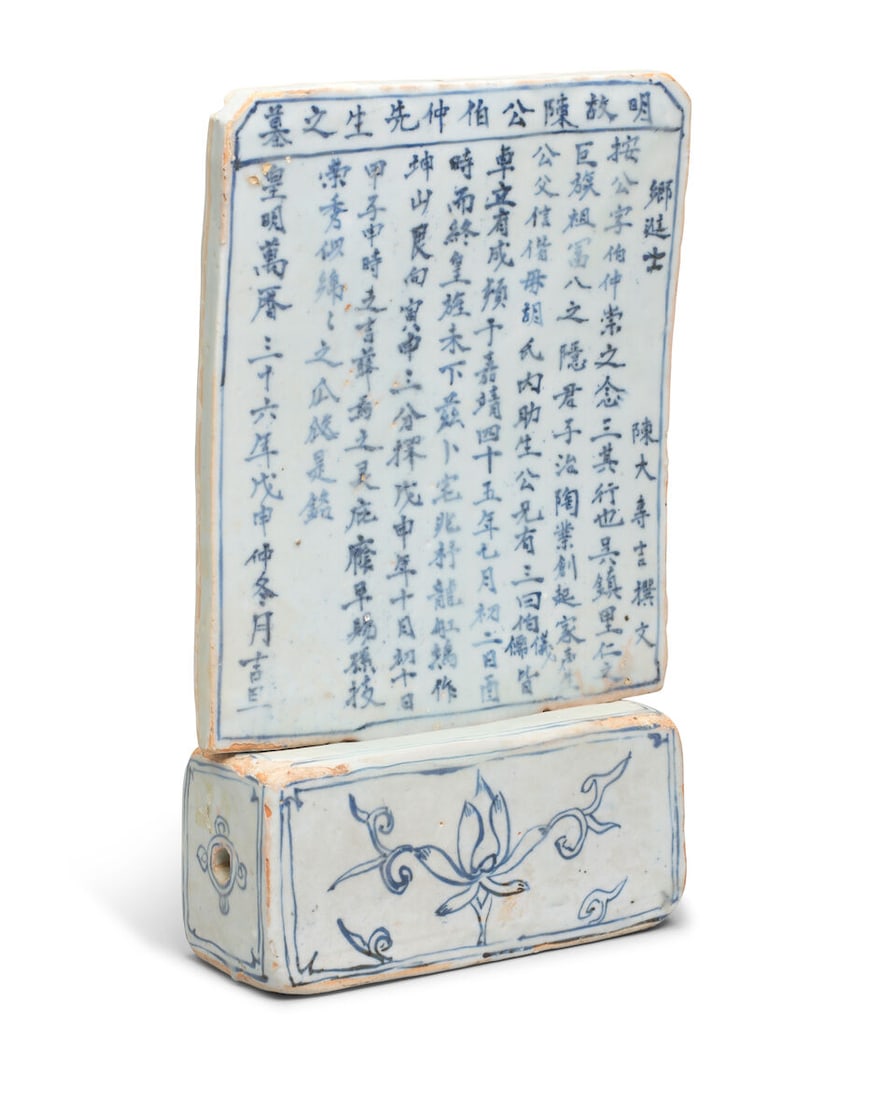 明故陳公伯仲先生之墓
鄉進士 陳大專言撰文
按公字伯仲崇之念三其行也吳鎮里仁之
巨族祖富八之隱君子治陶業創起家
公父信偕毋胡氏内助生公兄有三曰伯儀儒皆
卓立有成頻于嘉靖四十五年七月初二日酉
時而終皇旌未下茲卜宅兆杼龍缸塢作
坤山艮向寅申三分擇戊申年十月初十日
甲子申時之吉葬焉之灵庇廕早賜孫枝
崇秀似綿〻之瓜瓞是銘
皇明萬曆三十六年戊申仲冬月吉旦